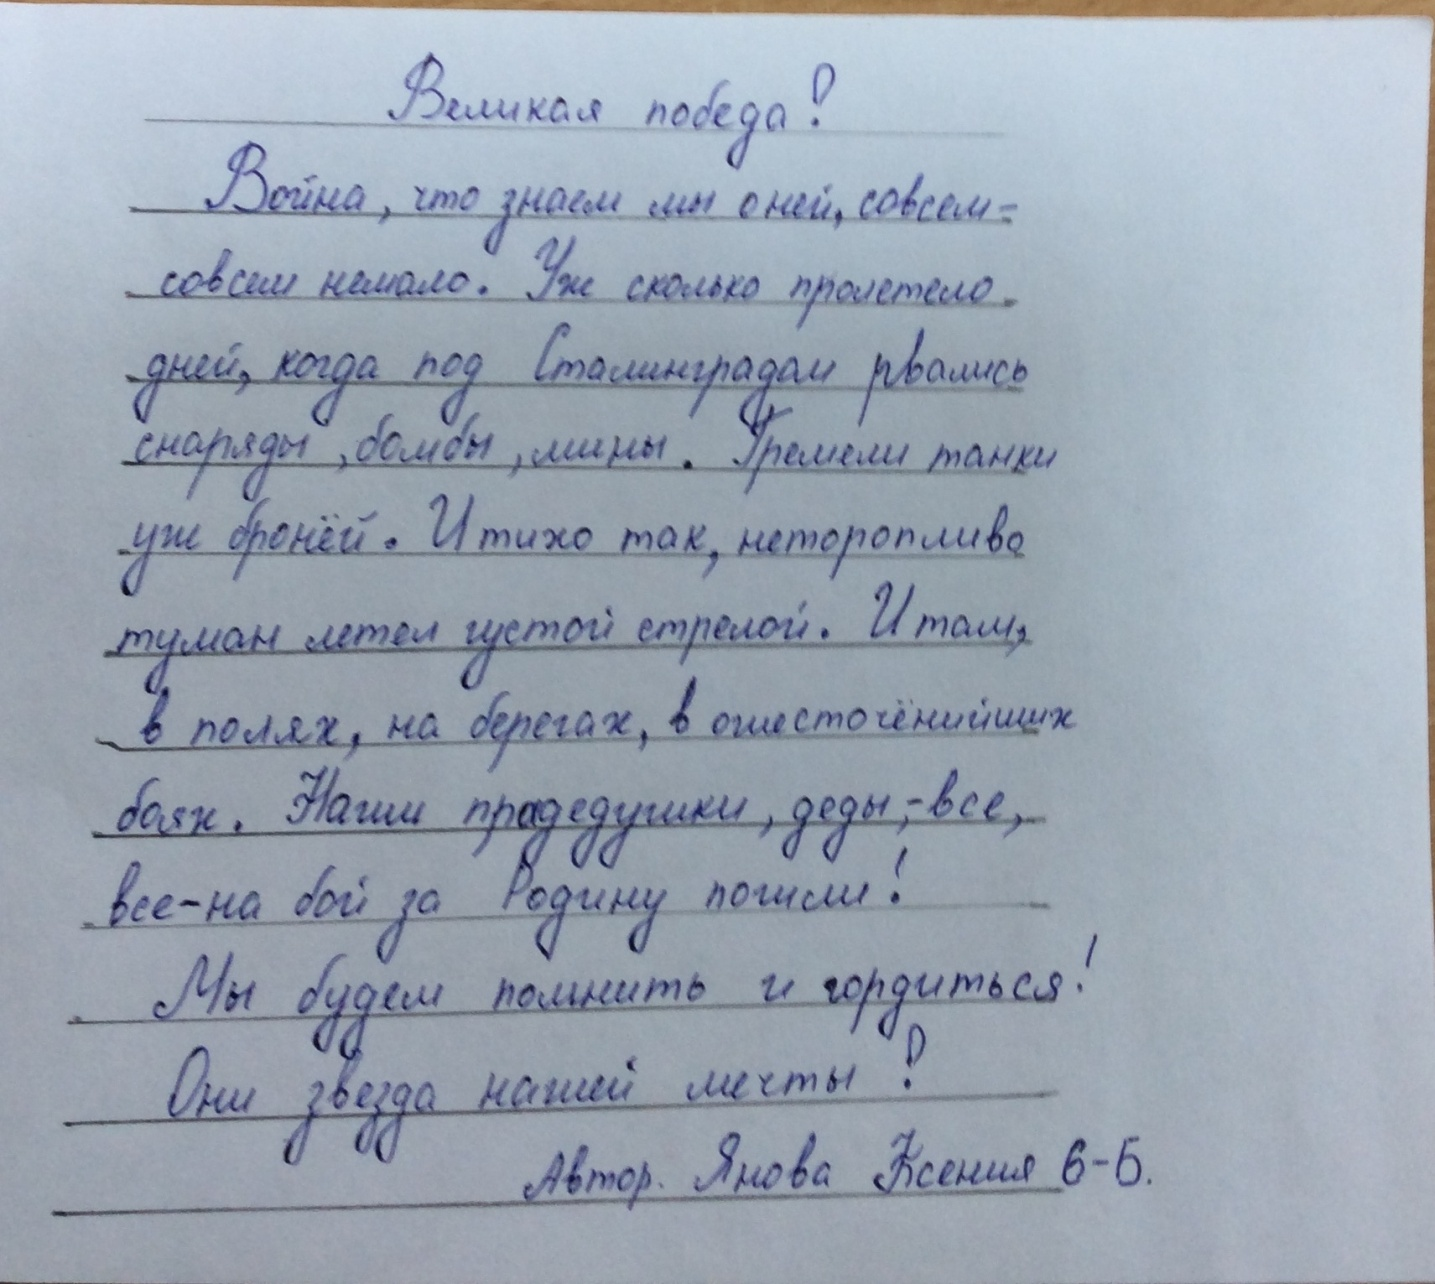 Великая победа!
Война, что знаем мы о ней, совсем=
совсем немало. Уж сколько пролетело
дней, когда под Сталинградом рвались
снаряды, бомбы, мины. Гремели танки
уж бронёй. И тихо так, неторопливо
туман летел густой стрелой. И там,
в полях, на берегах, в ожесточёнийших
боях. Наши прадедушки, деды,-все,
все-на бой за Родину пошли!
Мы будем помнить и гордиться!
Они звезда нашей мечты!
Автор. Янова Ксения 6-Б.